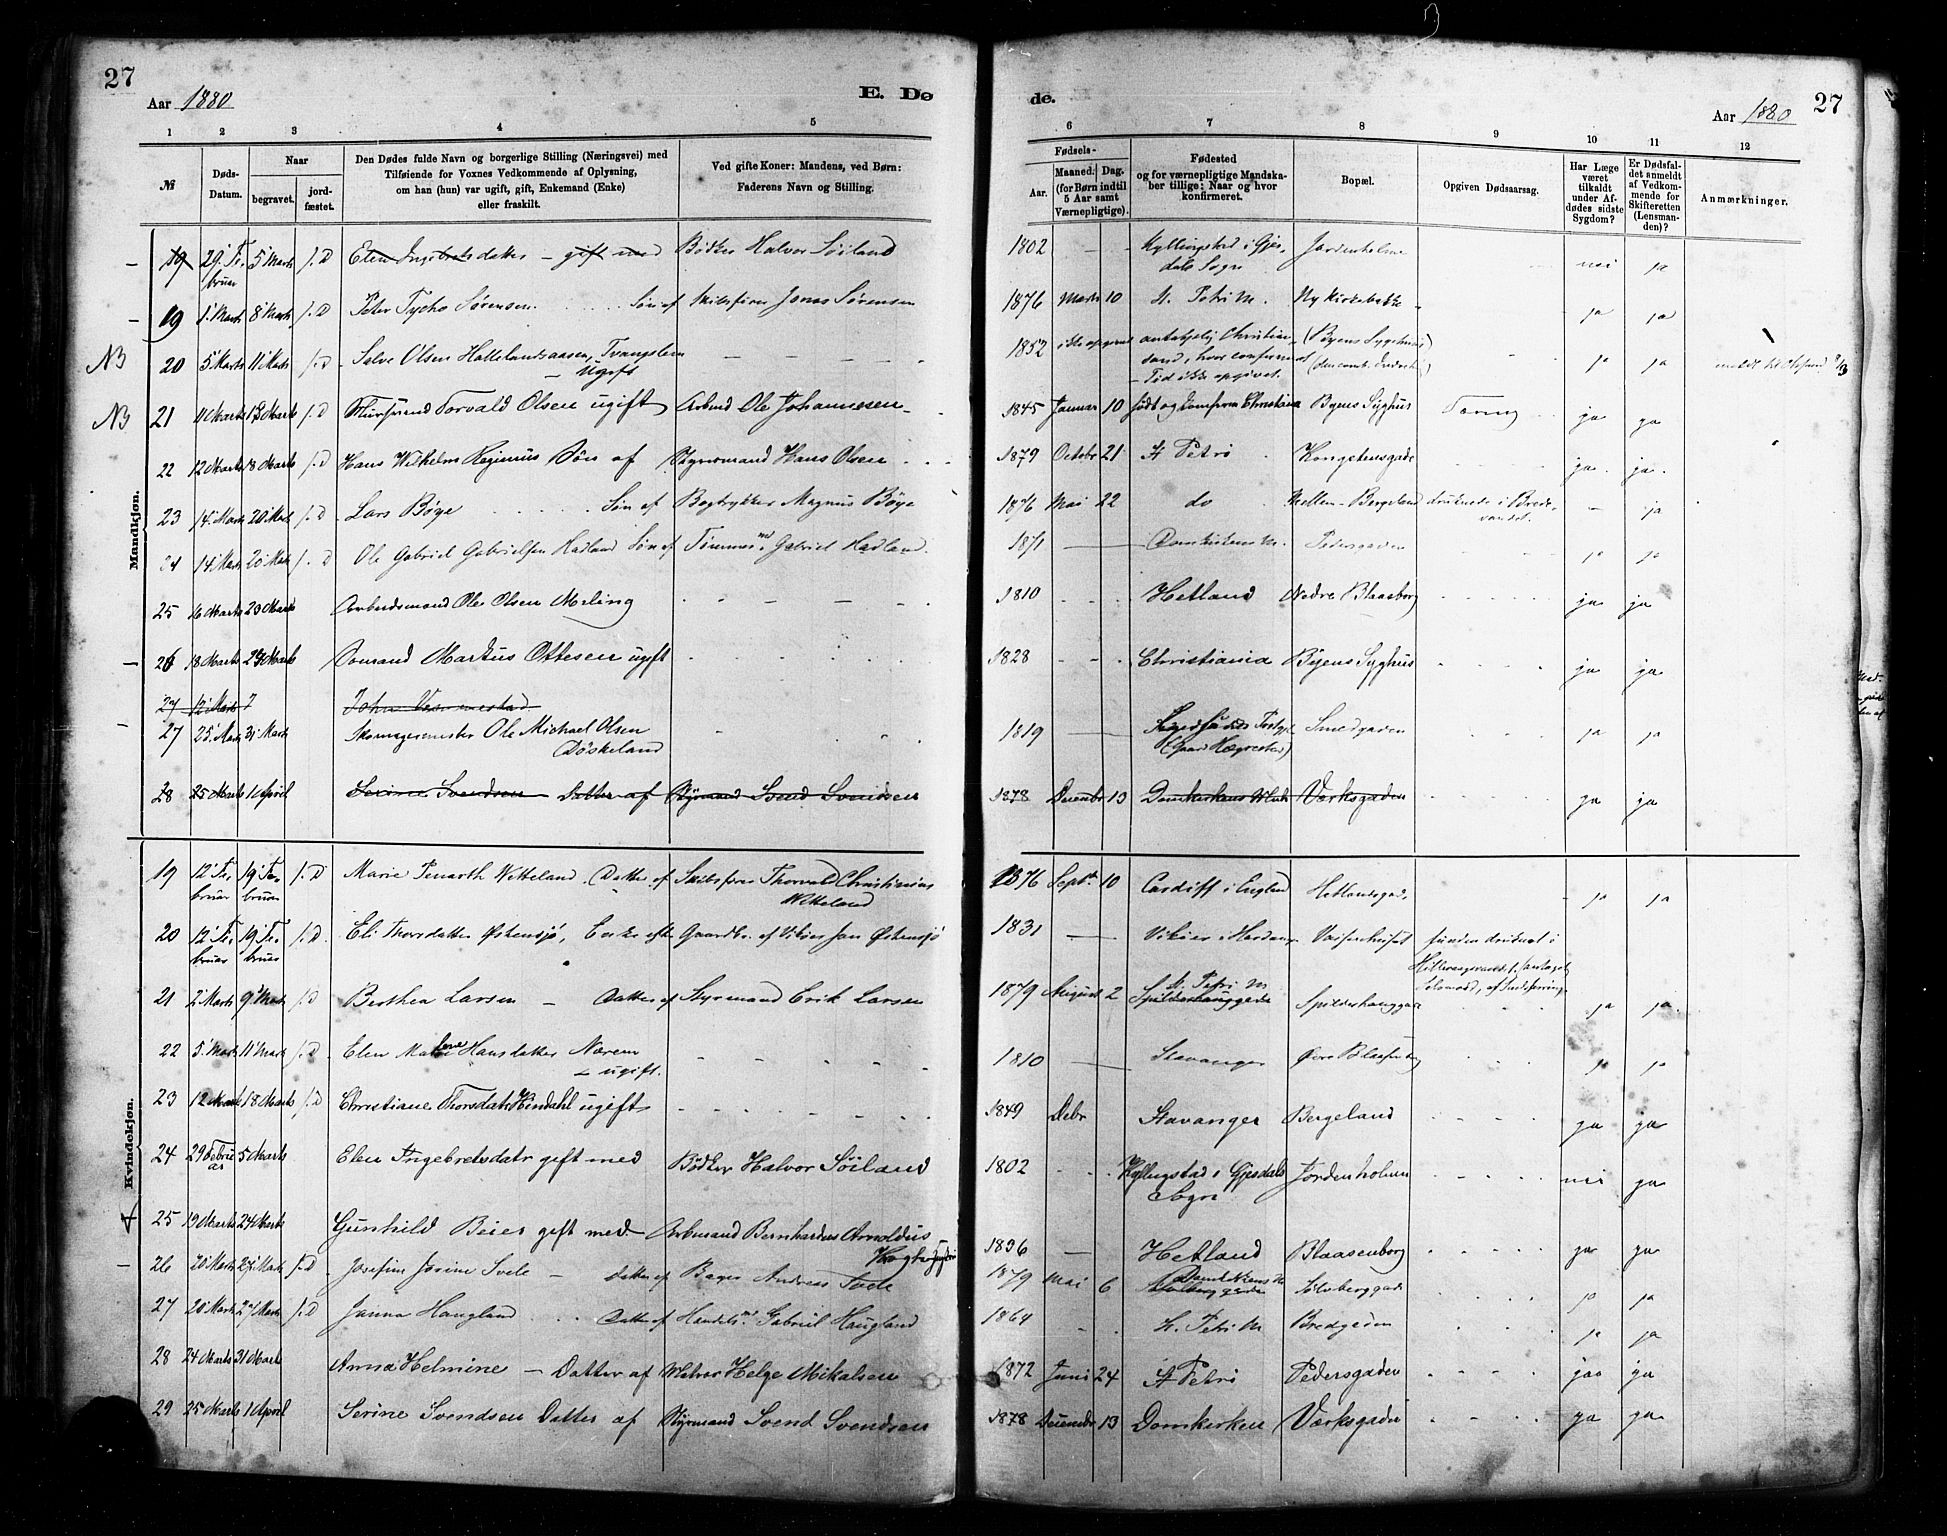 27
Aar 1880
E. Dø
de.
Aar 1880
27
1 2 3 4 5
6 7 8 9 10 11 12
№
Døds-
Datum.
Naar
begravet.
jord-
fæstet.
Den Dødes fulde Navn og borgerlige Stilling (Næringsvei) med
Tilføiende for Voxnes Vedkommende af Oplysning,
om han (hun) var ugift, gift, Enkemand (Enke)
eller fraskilt.
Ved gifte Koner: Mandens, ved Børn:
Faderens Navn og Stilling.
Fødsels-
Aar.
Maaned.
Dag.
(for Børn indtil
5 Aar samt
Værnepligtige).
Fødested
og for værnepligtige Mandska-
ber tillige: Naar og hvor
konfirmeret.
Bopæl.
Opgiven Dødsaarsag.
Har Læge
været
tilkaldt
under Af-
dødes sidste
Sygdom?
Er Dødsfal-
det anmeldt
af Vedkom-
mende for
Skifteretten
(Lensman-
den)?
Anmærkninger.
Mandkjøn.
19 29. Fe-bruar 5 Marts f. D Elen Ingebretsdatter – gift med Bødker Halvor Söiland 1802 Kyllingstad i Gjes-dals Sogn Jordenholmen nei ja
19 1' Marts 8' Marts f. D Peter Tycho Sørensen Søn af Skibsfører Jonas Sørensen 1876 Marts 10 St. Petri M. Nykirkebakke ja ja
NB 20 5' Marts 11' Marts f. D Salve Olsen Hallelandsaasen, Tvangslem – Ugift 1852 ikke opgivet antagelig Christian-sand, hvor confirmeret – Tid ikke opgivet. (Byens Sygehus) ja ja
NB 21 11 Marts 17 Marts f. D Thorvald Olsen ugift Arbmd Ole Johannesen 1845 Januar 10 født og konfirm Christiania Byens Syghus Tæring ja ja
22 12 Marts 18 Marts f. D Hans Wilhelm Reginius Søn af Styrmand Hans Olsen 1879 Octobr 21 St Petri Kongstensgade ja ja
23 14' Marts 20' Marts f. D Lars Bøye Søn af Bogtrykker Magnus Bøye 1876 Mai 22 do Mellem-Bergeland druknede i Brede-vandet. – ja
24 14' Marts 20 Marts f. D Ole Gabriel Gabrielsen Hadland Søn af Tømmermd. Gabriel Hadland. 1871 Domkirkens M. Pedersgaden ja ja
25 16 Marts 23 Marts Arbeidsmand Ole Olsen Meling 1810 Hetland Nedre Blaasborg ja ja
26 18 Marts 24 Marts Sømand Markus Ottesen ugift 1828 Christiania Byens Syghus ja ja
27 12' Marts ?
27 25' Marts 31 Marts Skomagermester Ole Michael Olsen Döskeland 1819 (Gaard Hægrestad) Smedgaden ja ja
28 25 Marts 1 April Serine Svendsen Datter af Styrmand Svend Svendsen 1878 Decembr 13 Domkirkens Mh Værksgaden ja ja
Kvindekjøn.
19 12' Fe-bruar 19' Fe-bruar f. D Marie Penarth Vetteland Datter af Skibsfører Thorvald Christianius Vetteland 1876 Septbr 10 Cardiff i England Hetlandsgade ja ja
20 12' Fe-bruar 19' Fe-bruar f. D. Eli Thorsdatter Østensjø, Enke efter Gaardbr. af Vikør Jan Østensjø 1831 Vikør i Hardanger Vaisenhuset funden druknet i
21 2' Marts 9' Marts f. D Berthea Larsen – Datter af Styrmand Erik Larsen 1879 August 2 St. Petri M Spilderhauggade Spilderhauggade ja ja
22 5' Marts 11' Marts f. D Elen Malene Hansdatter Nærem – ugift. 1810 Stavanger Øvre Blaasenborg ja ja
23 12 Marts 18 Marts f. D Christiane Thorsdatr Hindahl ugift 1849 Debr Stavanger Bergeland ja ja
24 29 Februar 5 Marts Elen Ingebretsdatr gift med Bödker Halvor Söiland 1802 Kyllingstad i Gjesdals Sogn Jordenholmen nei ja
25 19 Marts 24 Marts Gunhild Beier gift med Arbmand Bernhardus Arnoldus 1836 Hetland Blaasenborg ja ja
26 20 Marts 27 Marts f. D Josefine Josine Svele – Datter af Bager Andreas Svele 1879 Mai 6 Domkirkens M Sølvberggade ja ja
27 20' Marts 27 Marts f. D Janna Haugland Datter af Handelsmd. Gabriel Haugland 1864 St. Petri M Bredgaden ja ja
28 24 Marts 31 Marts Anna Helmine – Datter af Matros Helge Mikalsen 1872 Juni 24 St Petri Pedersgaden ja ja
29 25 Marts 1 April Serine Svendsen Datter af Styrmand Svend Svendsen 1878 Decembr 13 Domkirken Værksgaden ja ja